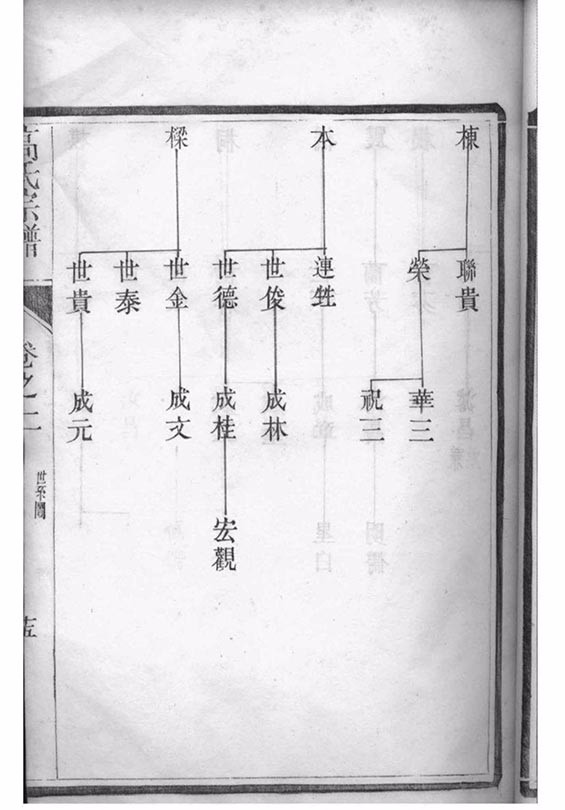 棟
聯貴
榮
華三
祝三
本
連甡
世俊
成林
世德
成桂
宏觀
樑
世金
成文
世泰
世貴
成元
高氏宗譜
卷之二
世系圖